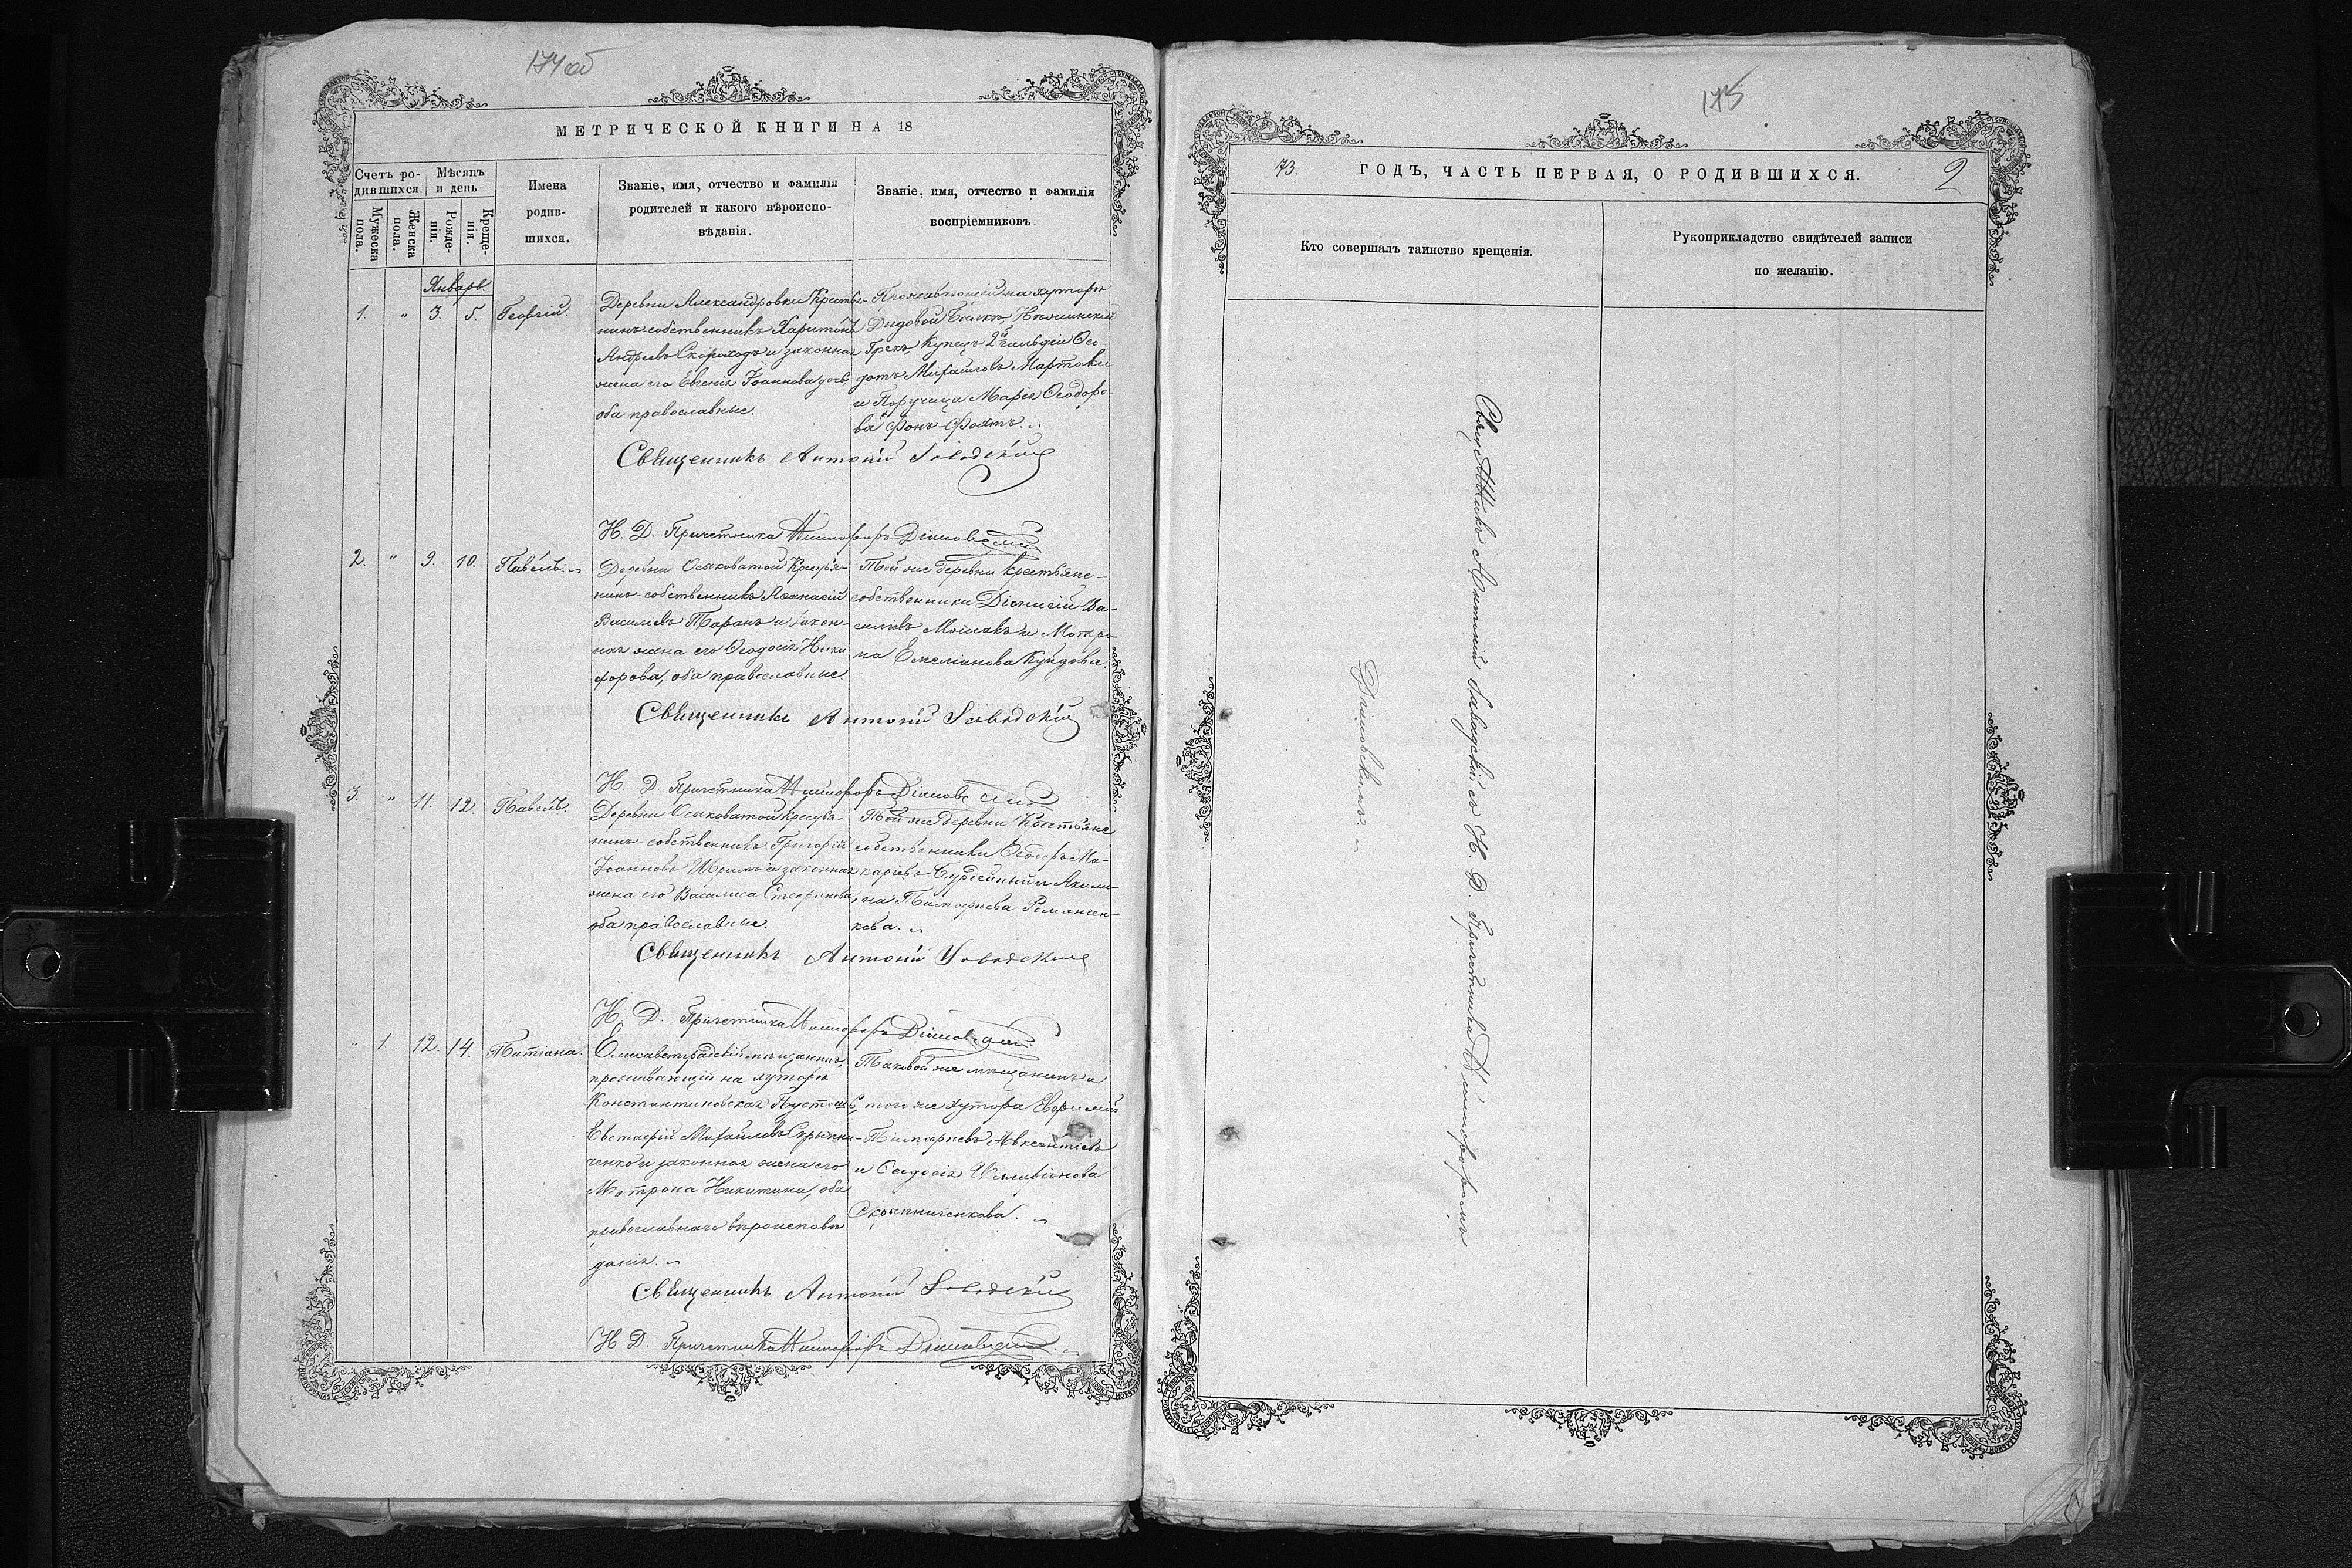 174об
МЕТРИЧЕСКОЙ КНИГИ НА 18
Счетъ ро-
дившихся.
Мѣсяцъ
и день
Мужеска
пола.
Женска
пола.
Рожде-
нія.
Креще-
нія.
Имена
родив-
шихся.
Званіе, имя, отчество и фамилія
родителей и какого вѣроиспо-
вѣданія.
Званіе, имя, отчество и фамилія
воспріемниковъ.
Январь.
1. " 3. 5. Георгій.
Деревни Александровки Крестья-
нинъ-собственникъ Харитонъ
Андреевъ Скороходъ и законная
жена его Евгенія Іоаннова дочь
оба православные.
Проживающій на хуторѣ
Дидовой Балкѣ Нѣжинскій
Грекъ, Купецъ 2й гильдіи Ѳео-
дотъ Михайловъ
и Поручица Марія Ѳеодоро-
ва Фонъ-
Священникъ Антоній Завадскій
Н. Д. Причетника Никифоръ
2. " 9. 10. Павелъ.
Деревни Осиковатой Крестья-
нинъ-собственникъ Аѳанасій
Васильевъ Таранъ и закон-
ная жена его Ѳеодосія Ники-
форова, оба православные.
Той же деревни крестьяне-
собственники Діонисій Ва-
сильевъ и Мотро-
на Емеліанова
Священникъ Антоній Завадскій
Н. Д. Причетника Никифоръ
3. " 11. 12. Павелъ.
Деревни Осиковатой Крестья-
нинъ-собственникъ Григорій
Іоанновъ и законная
жена его Василиса Стефанова,
оба православные.
Той же деревни Крестьяне
собственники Ѳеодоръ Ма-
каріевъ и Акили-
на Тимофеева Романен-
кова.
Священникъ Антоній Завадскій
Н. Д. Причетника Никифоръ
" 1. 12. 14. Татіана.
Елисаветградскій мѣщанинъ,
проживающій на хуторѣ
Константиновская Пустошь,
Евстафій Михайловъ Скрыпни-
ченко и законная жена его
Мотрона Никитина, оба
православнаго вѣроисповѣ
данія.
Таковой же мѣщанинъ и
того же хутора Евфимій
Тимофеевъ Авксентіевъ
и Ѳеодосія
Скрыпниченкова.
Священникъ Антоній Завадскій
Н. Д. Причетника Никифоръ
175
73. ГОДЪ, ЧАСТЬ ПЕРВАЯ, О РОДИВШИХСЯ. 2
Кто совершалъ таинство крещенія.
Рукоприкладство свидѣтелей записи
по желанію.
Священникъ Антоній Завадскій съ Н. Д. Причетника Никифоромъ